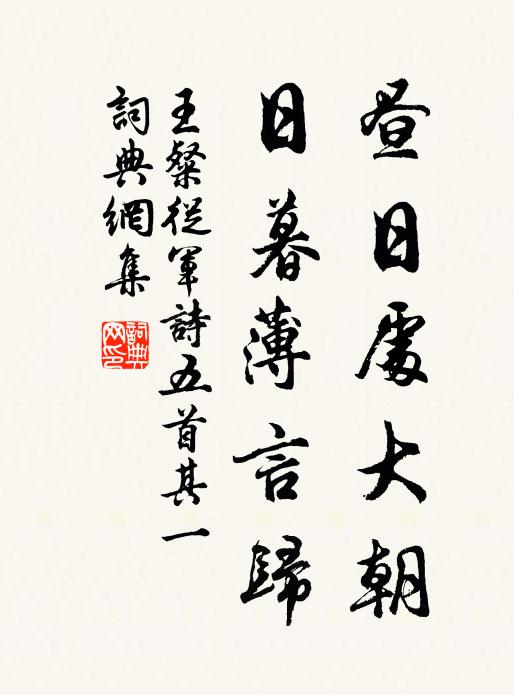 昼日處大朝
日暮薄言歸
王粲從軍詩五首其一
詞典網集
詞典
网印